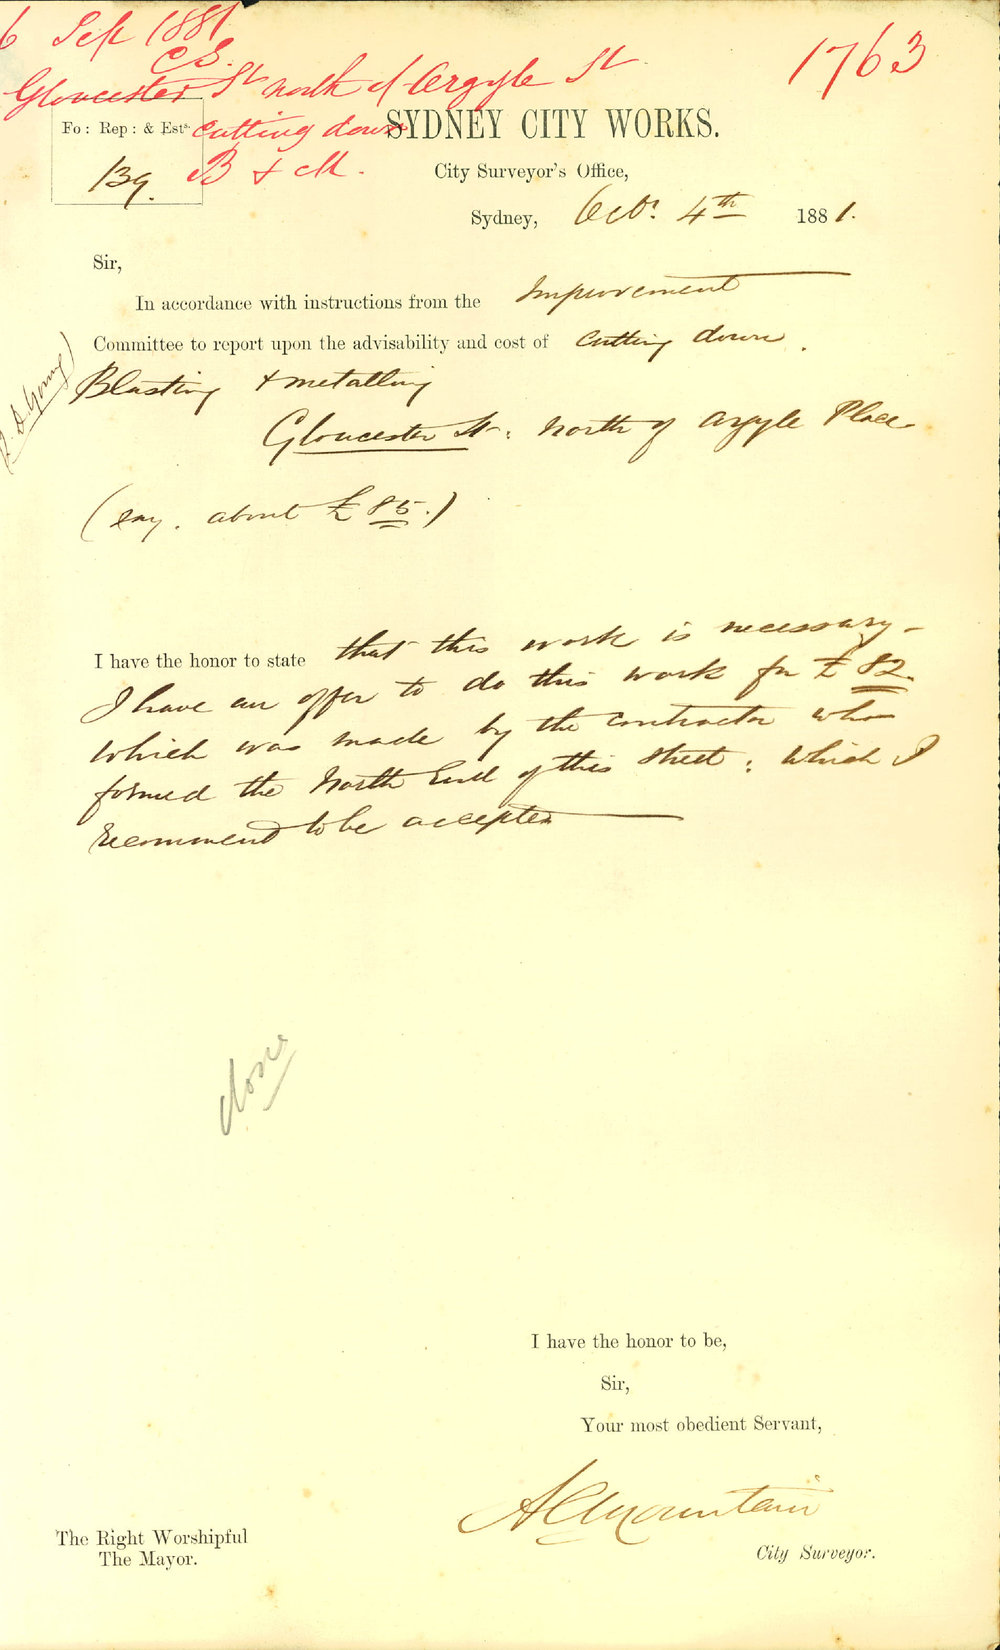 6 Sep 1881
C S.
1763
Gloucester St north of Argyle St
Fo: Rep: & Ests. Cutting down
139. B & M.
SYDNEY CITY WORKS.
City Surveyor's Office,
Sydney, Octr. 4th 1881.
Sir,
In accordance with instructions from the Improvement
Committee to report upon the advisability and cost of cutting down.
Blasting & metalling
Gloucester St: North of Argyle Place
(say. about £85.)
I have the honor to state that this work is necessary-
I have an offer to do this work for £82.
which was made by the contractor who
formed the North End of this street: which I
recommend to be accepted
done
I have the honor to be,
Sir,
Your most obedient Servant,
A C Mountain
City Surveyor.
The Right Worshipful
The Mayor.